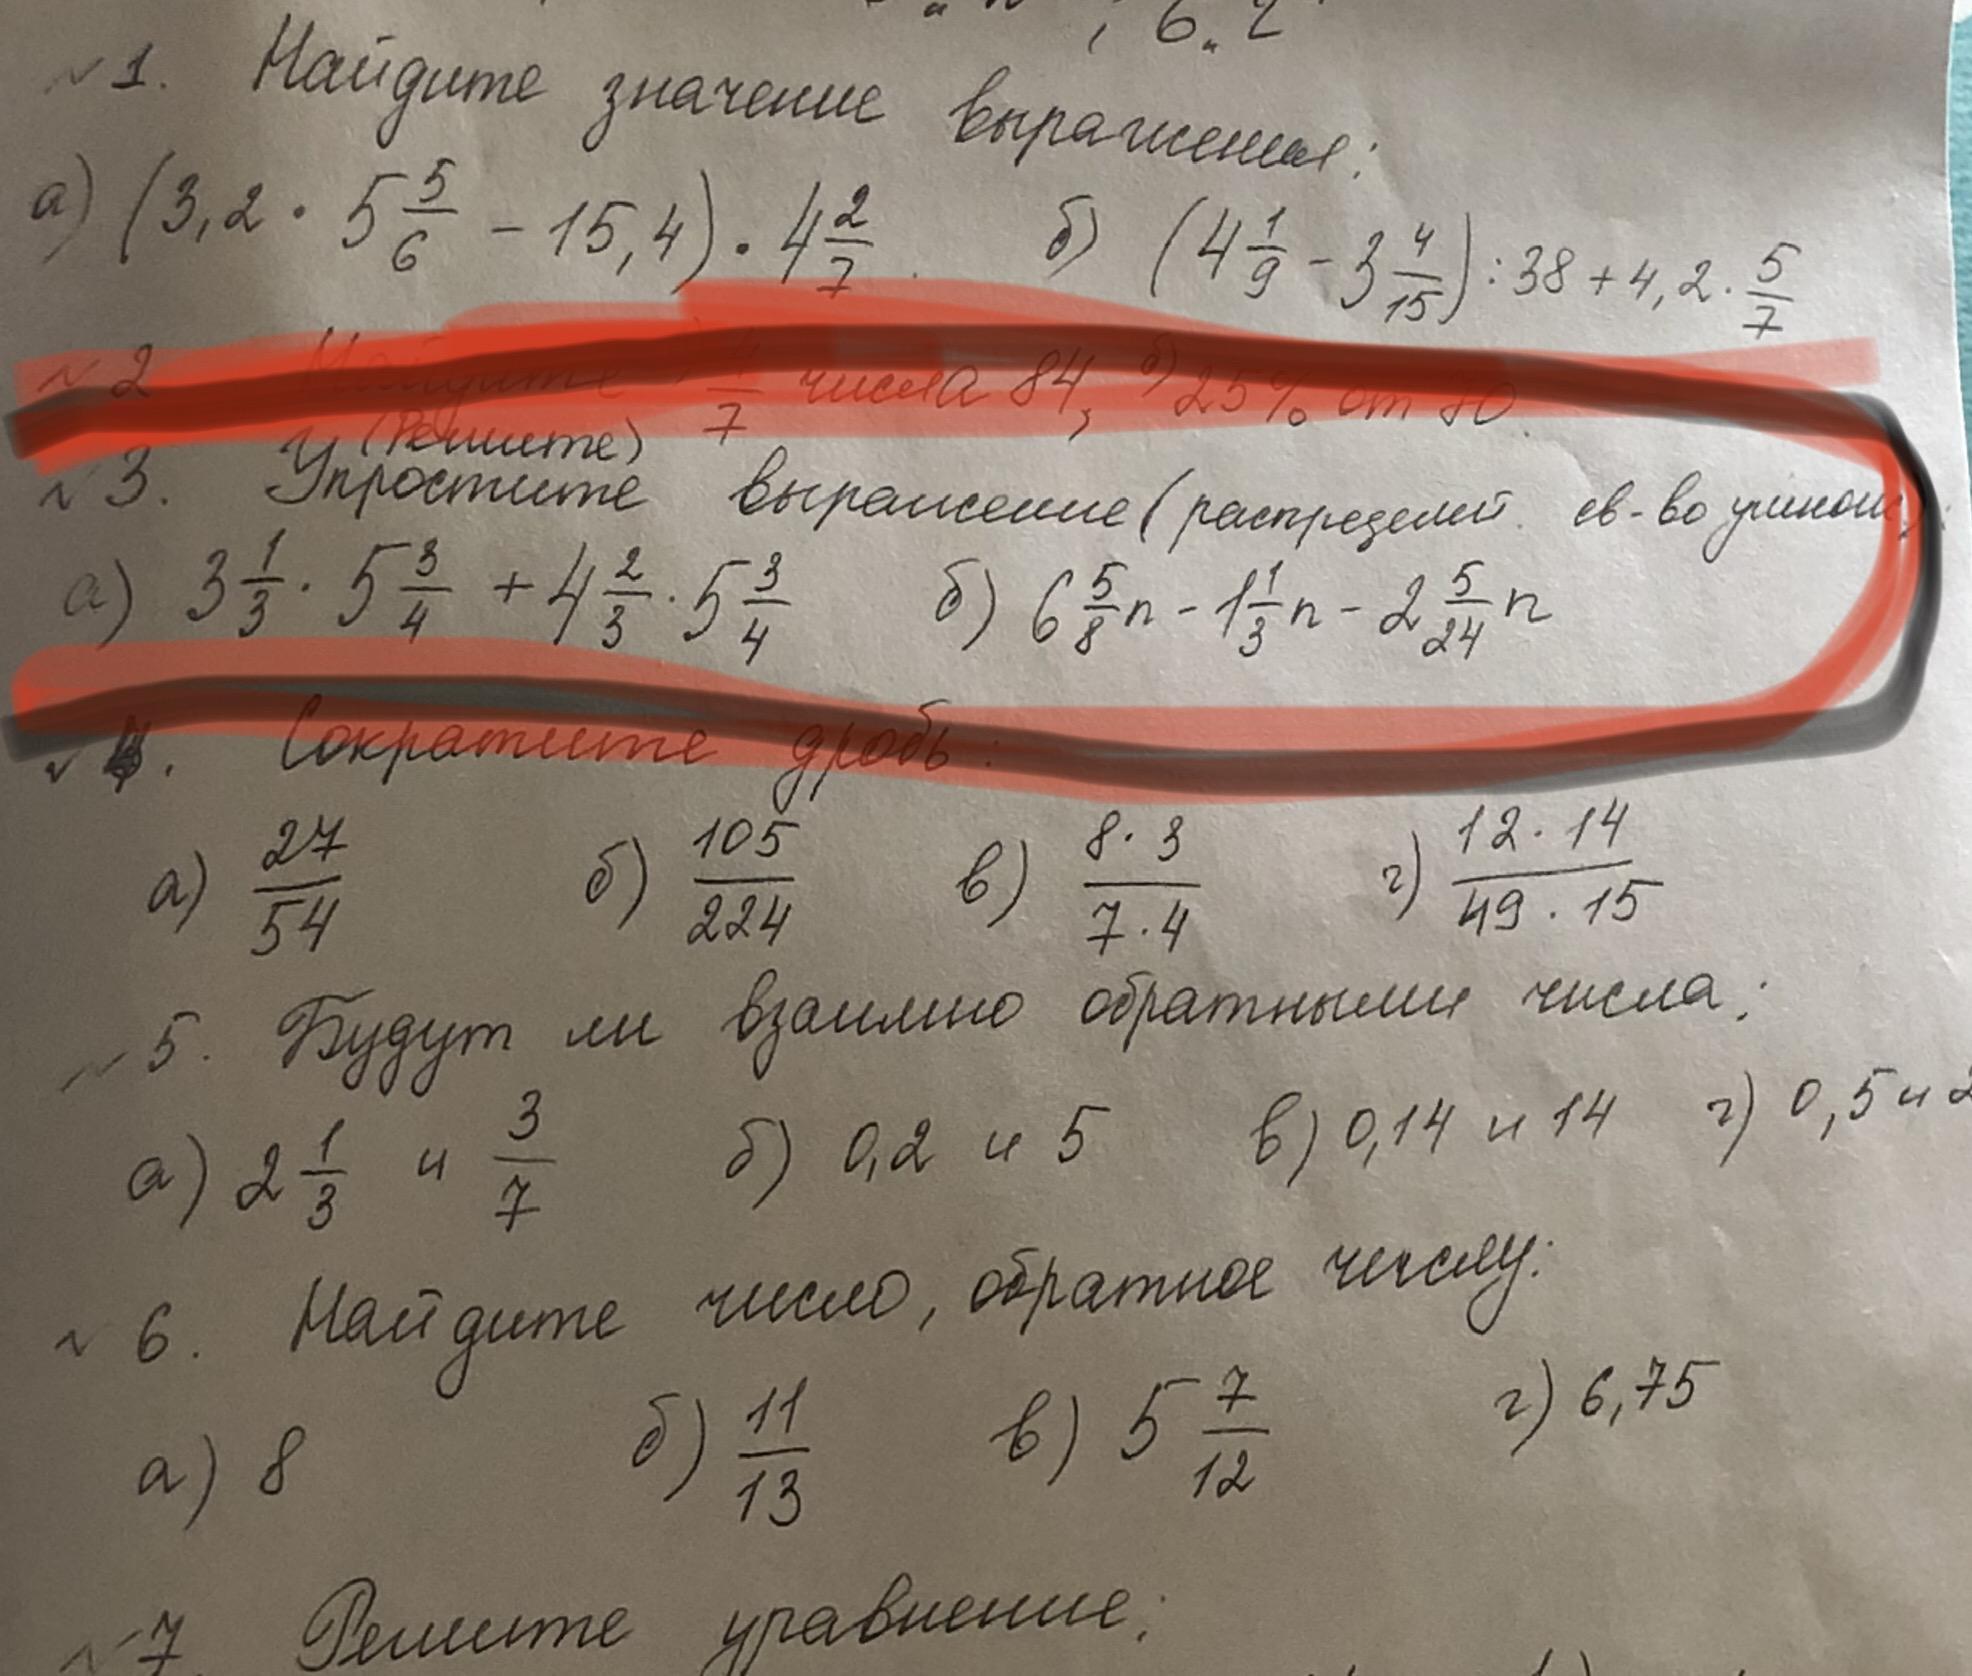 6.2
№1. Найдите значение выражения:
а) (3,2 · 5 5/6 - 15,4) · 4 2/7 б) (4 1/9 - 3 4/15) : 38 + 4,2 · 5/7
№2 Найдите 4/7 числа 84, б) 25% от
(Решите)
№3. Упростите выражение (распределит. св-во умнож):
а) 3 1/3 · 5 3/4 + 4 2/3 · 5 3/4 б) 6 5/8 n - 1 1/3 n - 2 5/24 n
№4. Сократите дробь:
а) 27/54 б) 105/224 в) 8·3/7·4 г) 12·14/49·15
№5. Будут ли взаимно обратными числа:
а) 2 1/3 и 3/7 б) 0,2 и 5 в) 0,14 и 14 г) 0,5 и 2
№6. Найдите число, обратное числу:
а) 8 б) 11/13 в) 5 7/12 г) 6,75
№7 Решите уравнение: